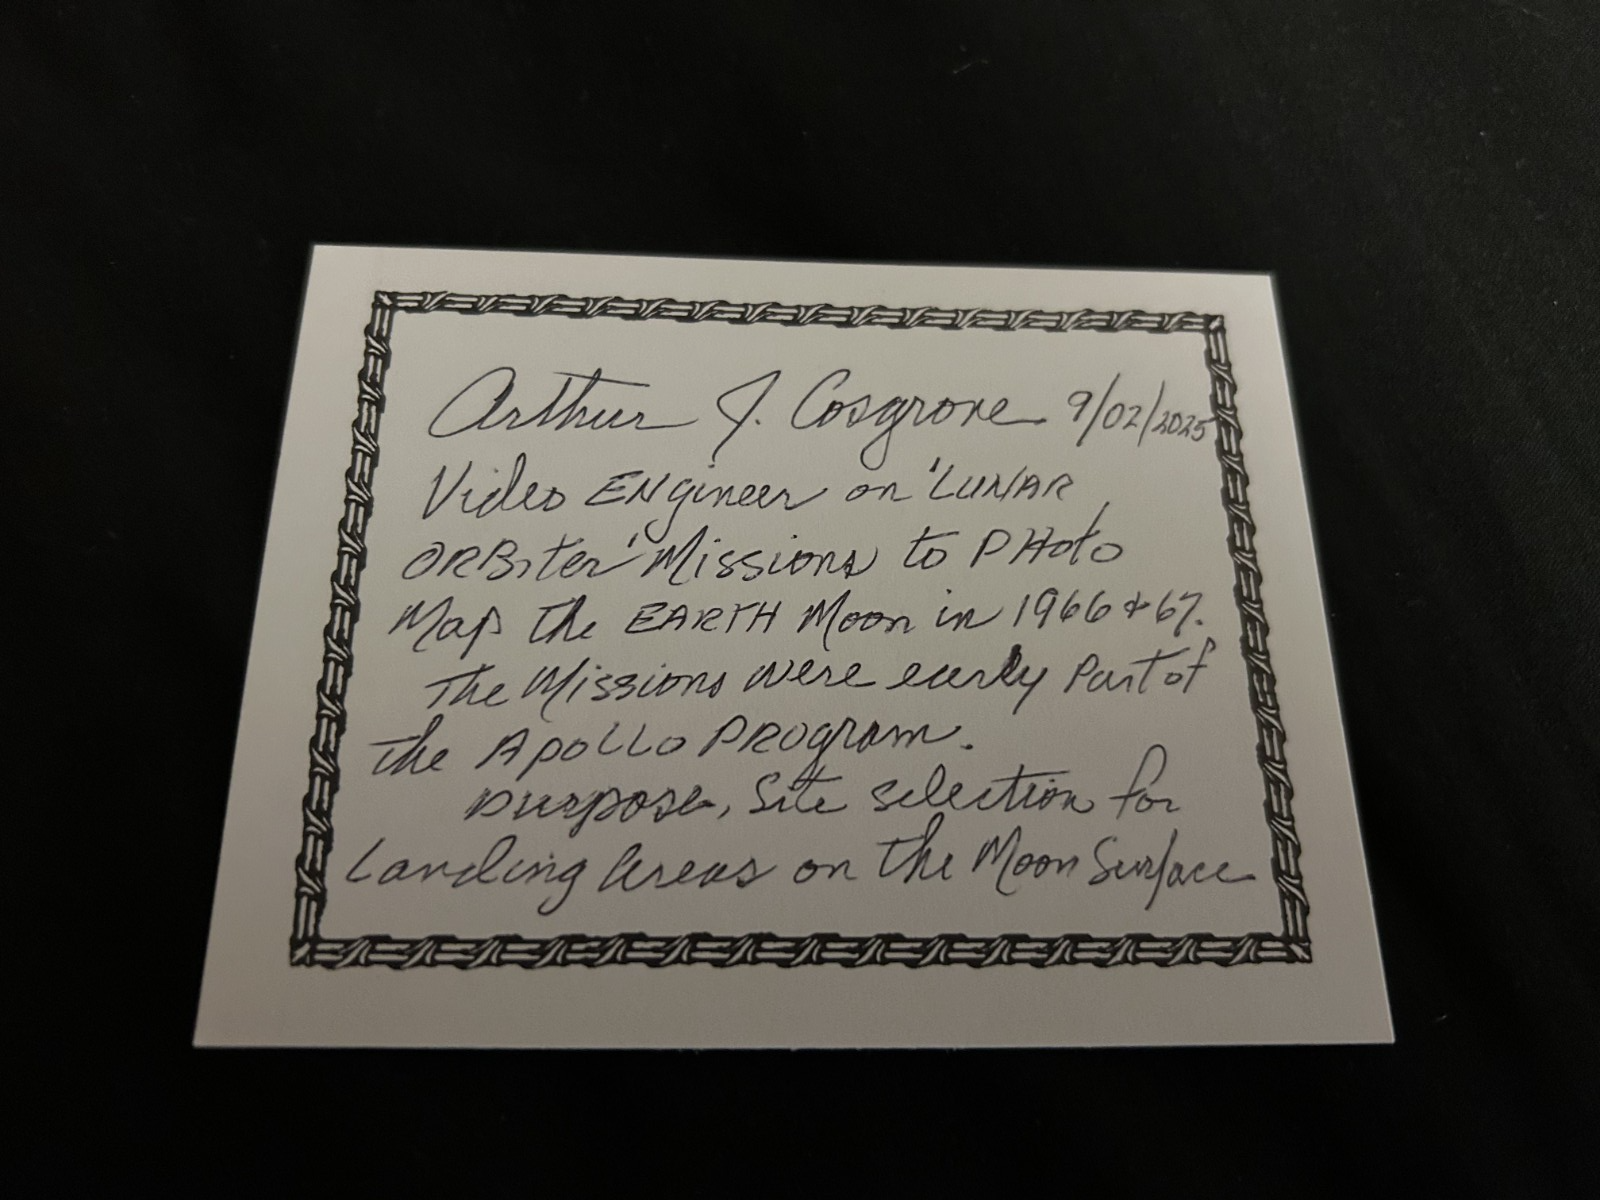 Arthur J. Cosgrove 9/02/2025
Video ENgineer on 'LUNAR
ORBiter' Missions to PHoto
Map the EARTH Moon in 1966 & 67.
The Missions were early Part of
the APOLLO PROgram.
purpose, Site selection for
Landing Areas on the Moon Surface